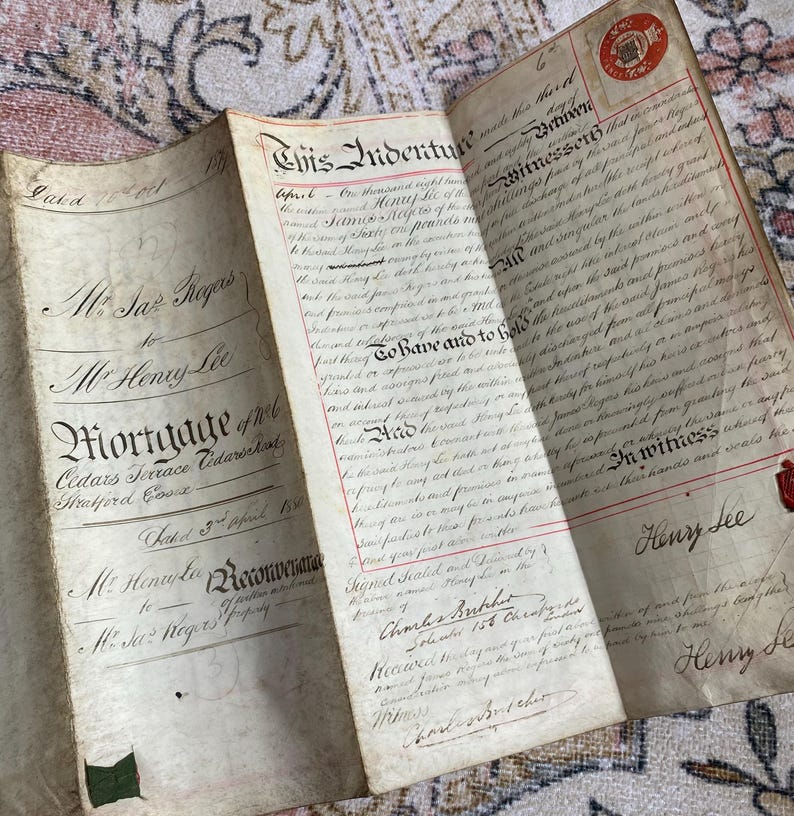 Dated 10th Oct 187
Mr. Jas. Rogers
to
Mr Henry Lee
Mortgage of No 6
Cedars Terrace Cedars Road
Stratford Essex
Dated 3rd April 1880
Mr. Henry Lee
to
Mr. Jas. Rogers
Reconveyance
of within mentioned
property
6d
This Indenture made this third day of
April One thousand eight hundred and eighty Between
the within named Henry Lee of the
named James Rogers of the other Witnesseth that in consideration
of the sum of Sixty one pounds nine shillings paid by the said James Rogers
to the said Henry Lee on the execution in full discharge of all principal and interest
money owing by virtue of the within written Indenture the receipt whereof
the said Henry Lee doth hereby He the said Henry Lee doth hereby grant
unto the said James Rogers and his heirs All and singular the lands hereditaments
and premises comprised in and granted assured by the within written
Indenture or expressed so to be And all Estate right title interest claim and
demand whatsoever of the said Henry Lee and upon the said premises and every
part thereof To have and to hold the hereditaments and premises hereby
granted or expressed so to be unto and to the use of the said James Rogers his
heirs and assigns freed and absolutely discharged from all principal moneys
and interest secured by the within written Indenture and all claims and demands
on account thereof respectively or any part thereof respectively or in anywise relating
thereto And the said Henry Lee doth hereby for himself his heirs executors and
administrators covenant with the said James Rogers his heirs and assigns that
he the said Henry Lee hath not at any time done or knowingly suffered or been party
or privy to any act deed or thing whereby he is prevented from granting the said
hereditaments and premises in manner aforesaid or whereby the same or any part
thereof are is or may be in anywise incumbered In witness whereof the
said parties to these presents have hereunto set their hands and seals the day
and year first above written
Signed Sealed and Delivered by
the above named Henry Lee in the
presence of
Charles Butcher
Solicitor 156 Cheapside
London
Henry Lee
Received the day and year first above written of and from the above
named James Rogers the sum of Sixty one pounds nine shillings being the
consideration money above expressed to be paid by him to me
Witness
Charles Butcher
Henry Lee